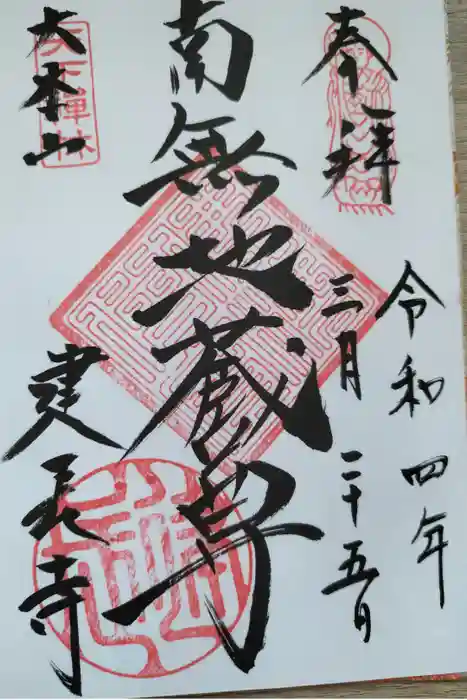 奉拝
令和四年
三月二十五日
南無地蔵尊
大本山
建長寺
天下禅林